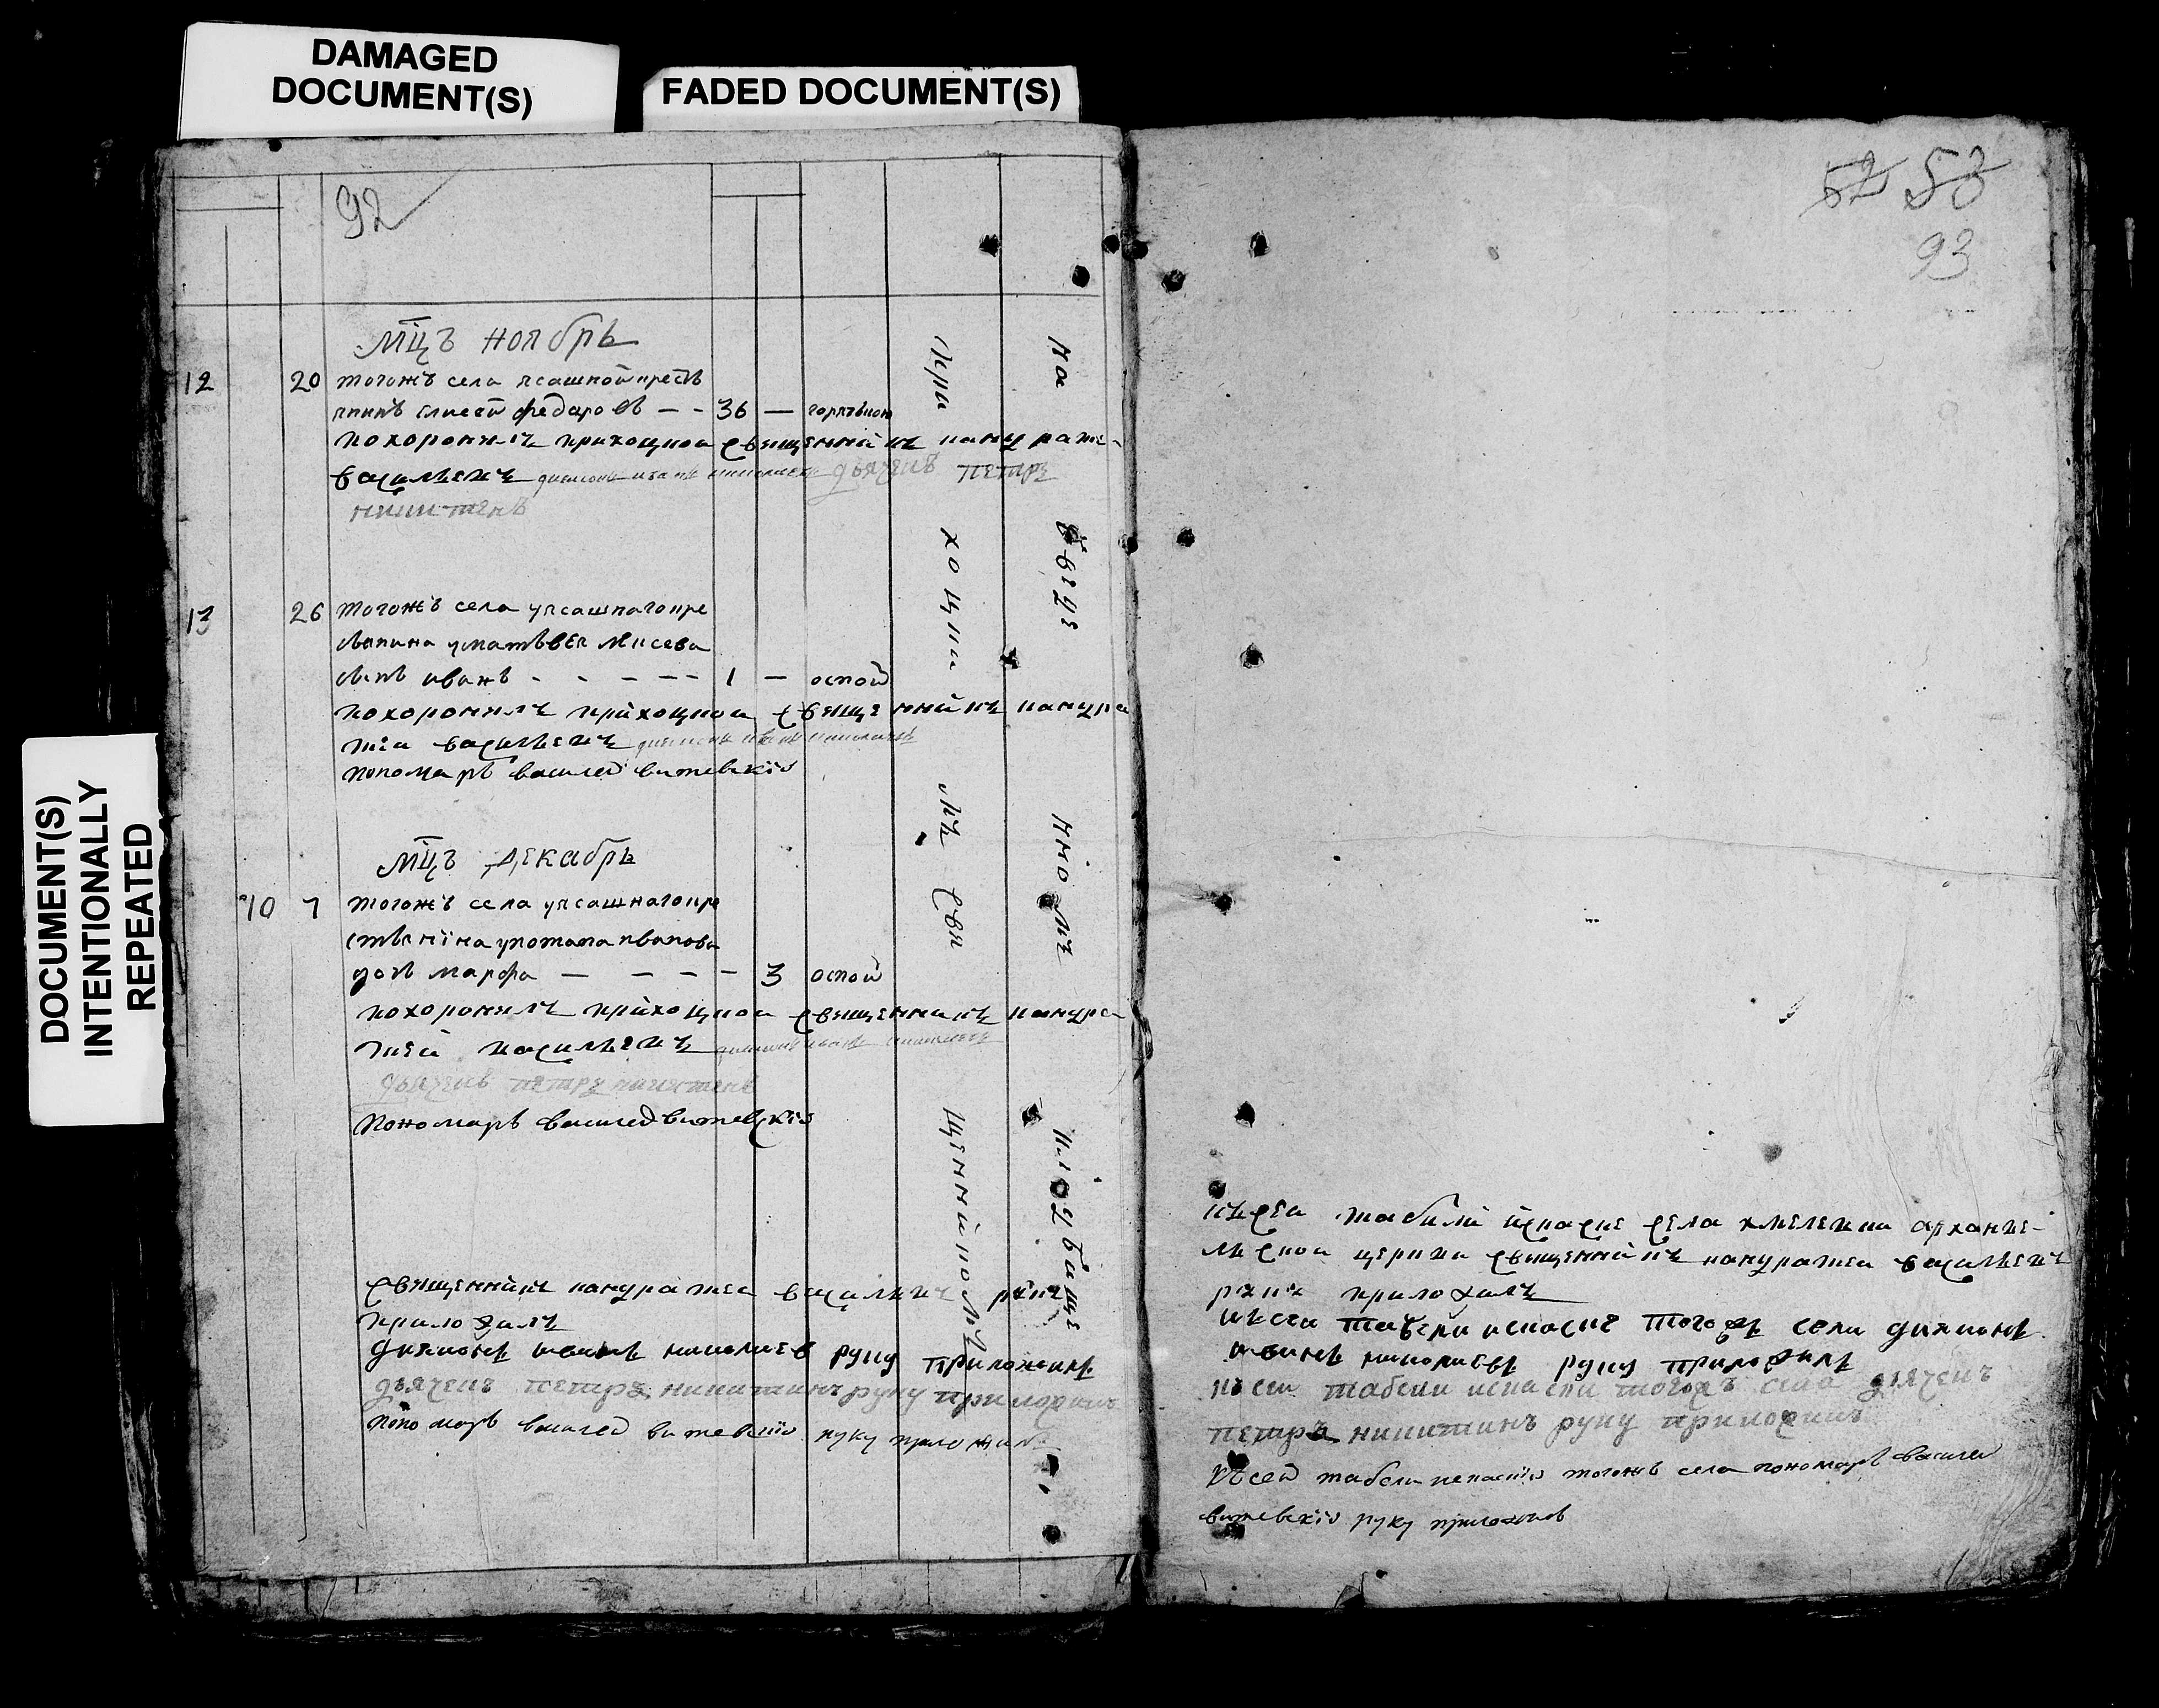 DAMAGED
DOCUMENT(S)
FADED DOCUMENT(S)
DOCUMENT(S)
INTENTIONALLY
REPEATED
92
мц҃ъ ноябрь
12 20 тогожъ села ясашной крестъ
янинъ елисей федаровъ — — 36 — горячкою
похоронилъ приходцкои священникъ кондратеи
васильевъ диаконъ иванъ николаевъ дьячекъ петръ
никитинъ
13 26 тогожъ села уясашнаго кре
стьянина уматвѣея
сынъ иванъ - - - - - 1 — оспой
похоронилъ приходцкои священникъ кондра
теи васильевъ диаконъ иванъ николаевъ
пономарь василей витевский
мц҃ъ декабрь
10 7 тогожъ села уясашнаго кре
стьянина употапа иванова
дочь марфа — — — — 3 оспой
похоронилъ приходцкои священникъ кондра
теи васильевъ диаконъ иванъ николаевъ
дьячекъ петръ никитинъ
пономарь василей витевский
священникъ кондратеи васильевъ руку
приложилъ
диаконъ иванъ николаевъ руку приложилъ
дьячекъ петръ никитинъ руку приложилъ
пономарь василей витевский руку приложилъ
при ходцки мъ свя щенникомъ
на
52 53
93
къ сеи табели села архангельскои церкви священникъ кондратеи васильевъ
руку приложилъ
къ сеи табели тогожъ села диаконъ
иванъ николаевъ руку приложилъ
къ сеи табели тогожъ села дьячекъ
петръ никитинъ руку приложилъ
къ сей табели тогожъ села пономарь василей
витевский руку приложилъ